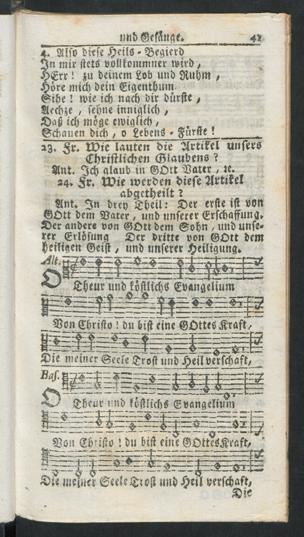 und Gesänge. 41
4. Also diese Heils-Begierd
In mir stets vollkommner wird,
HErr! zu deinem Lob und Ruhm,
Höre mich dein Eigenthum
Sihe! wie ich nach dir dürste,
Aechze, sehne inniglich,
Daß ich möge ewiglich,
Schauen dich, o Lebens-Fürste!
23. Fr. Wie lauten die Artikel unsers
Christlichen Glaubens?
Ant. Ich glaub in GOtt Vater, ꝛc.
24. Fr. Wie werden diese Artikel
abgetheilt?
Ant. In drey Theil: Der erste ist von
GOtt dem Vater, und unserer Erschaffung.
Der andere von GOtt dem Sohn, und unse-
rer Erlösung Der dritte von GOtt dem
heiligen Geist, und unserer Heiligung.
Alt.
O Theur und köstlichs Evangelium
Von Christo! du bist eine GOttes Kraft,
Die meiner Seele Trost und Heil verschaft,
Bas.
O Theur und köstlichs Evangelium
Von Christo! du bist eine GOttes Kraft,
Die meiner Seele Trost und Heil verschaft,
Die